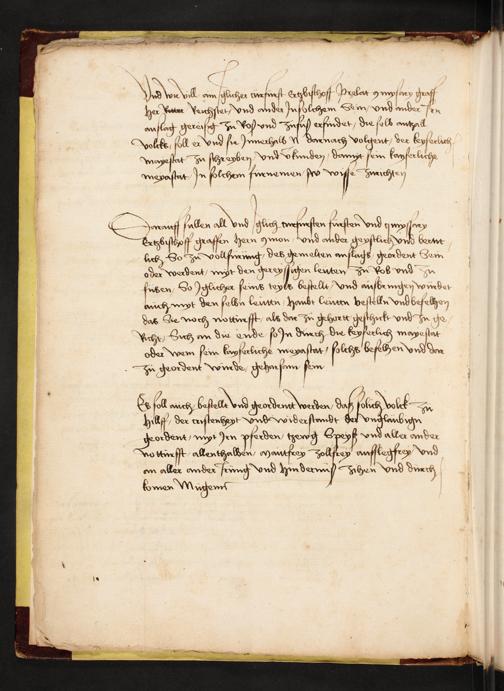 Und wie vill ain yglicher curfurst Ertzbischoff Prelat graff
her Reychstet, und ander In solchem Sein, und ander Irn
anslag gereysig zu Roß und zufuß erfindet, die soll antzall
volcks, soll er und sie Innerhalb N darnach volgent, der keyserlich
mayestat zu schreyben, und verkunden, damyt sein kayserliche
meyastat In solchem furnemen, zu wisse zurichten
Darauff sullen all und yglich curfursten fursten und
Ertzbischoff graffen hern und ander geystlich und wertt
lich So zu vollfurung, des gemelten anslags, geordent Sein
oder werdent, myt den gereyssigen leuten zu Roß und zu
fussen, So yglicher seins teyls bestellt und ausbringen wurdet
auch myt den selbn leuten, haubt leuten bestelln und befelhen
das Sie noch notturfft, als dar zu gehortt geschickt und zu ge
Richt, Sich an die ende so In durch die keyserlich mayestat
oder wem sein kayserliche meyastat, solchs befelhen und dar
zu geordent wurde, gehorsam sein
Es soll auch bestellt und geordent werden, daß solich volck zu
hilff, der cristenheyt und widerstandt der unglaubign
geordent, myt Irn pferden, tzewg Speyß und aller ander
notturfft, allenthalben, mautfrey zollfrey auffslegfrey und
on aller ander Irrung und hindernus zihen und durch
komen Mugenn